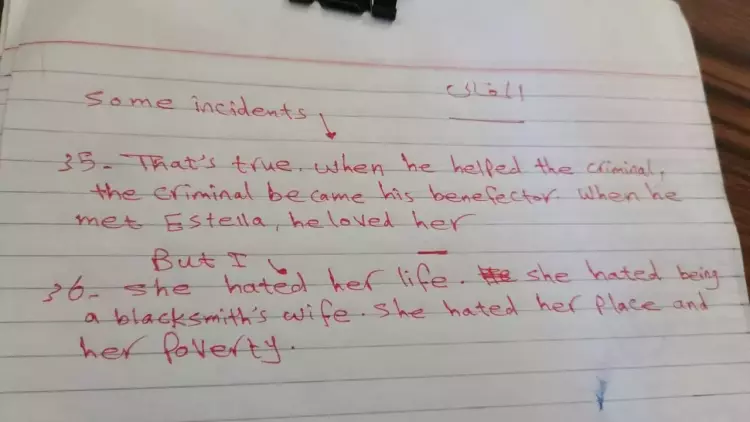 some incidents
35- That's true. when he helped the criminal,
the criminal became his benefector. When he
met Estella, he loved her
But I
36- she hated her life. she hated being
a blacksmith's wife. she hated her place and
her poverty.